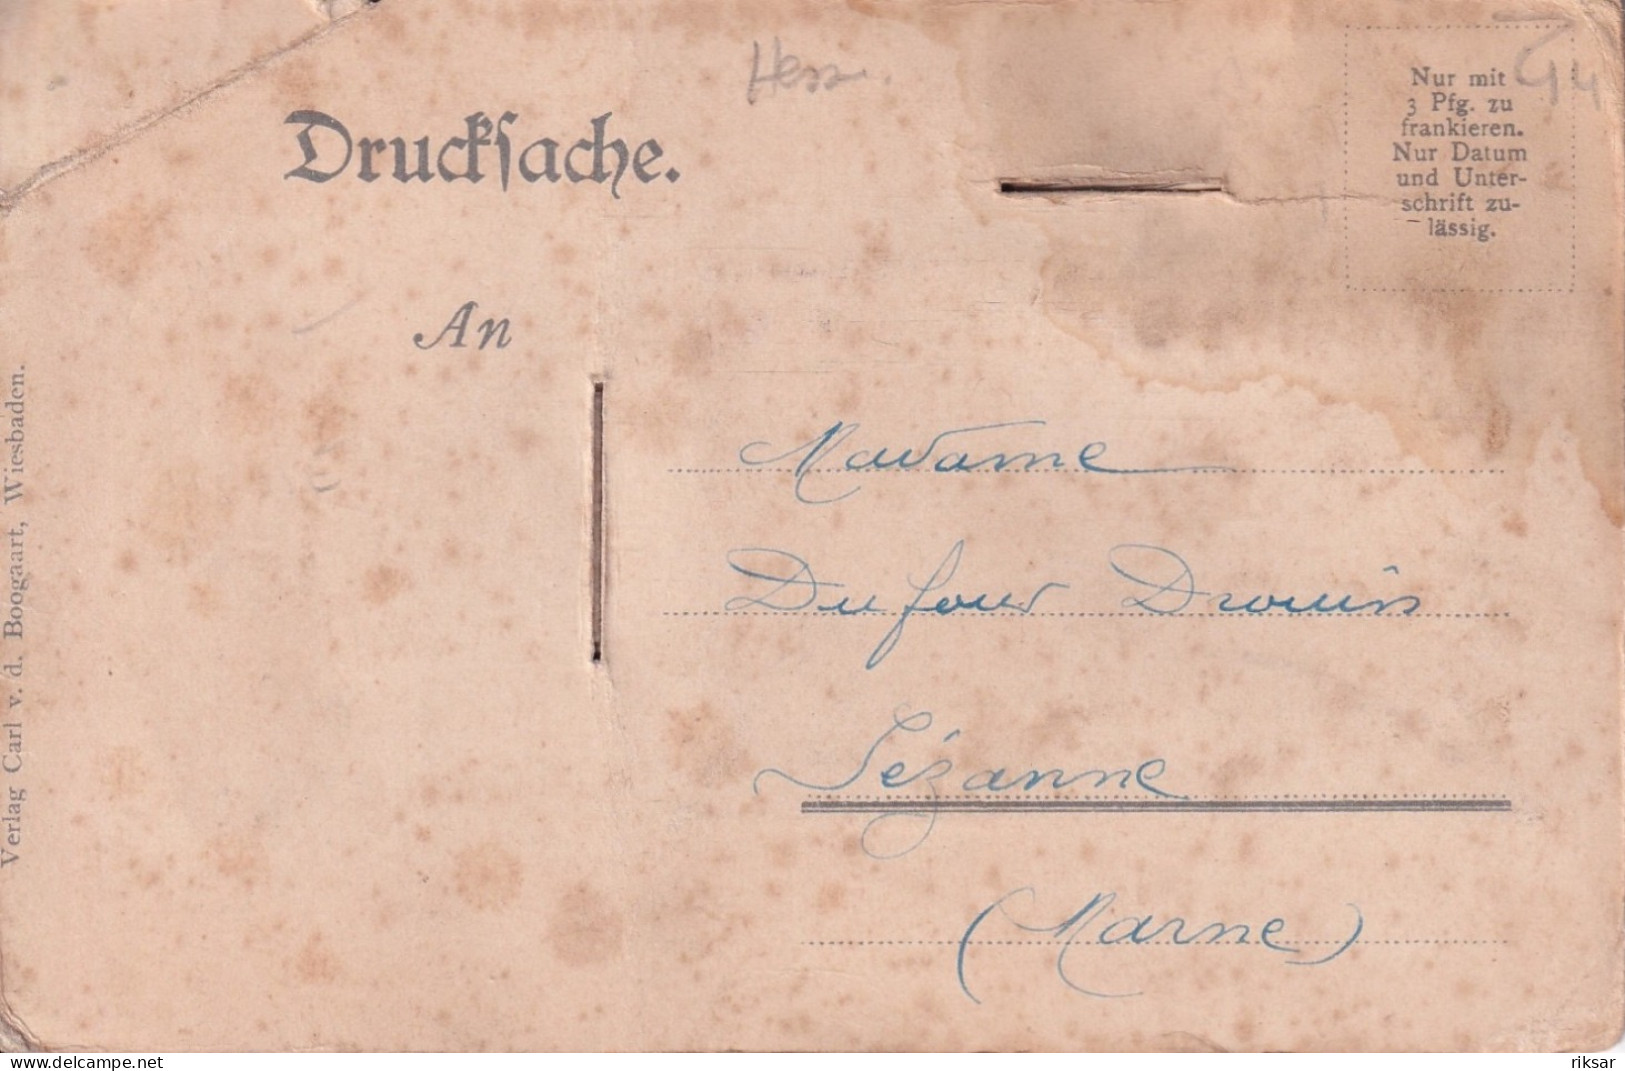 Hess
G4
Drucksache.
Nur mit
3 Pfg. zu
frankieren.
Nur Datum
und Unter-
schrift zu-
lässig.
An
Madame
Dufour Drouin
Sézanne
(Marne)
Verlag Carl v. d. Boogaart, Wiesbaden.
delcampe.net
riksar